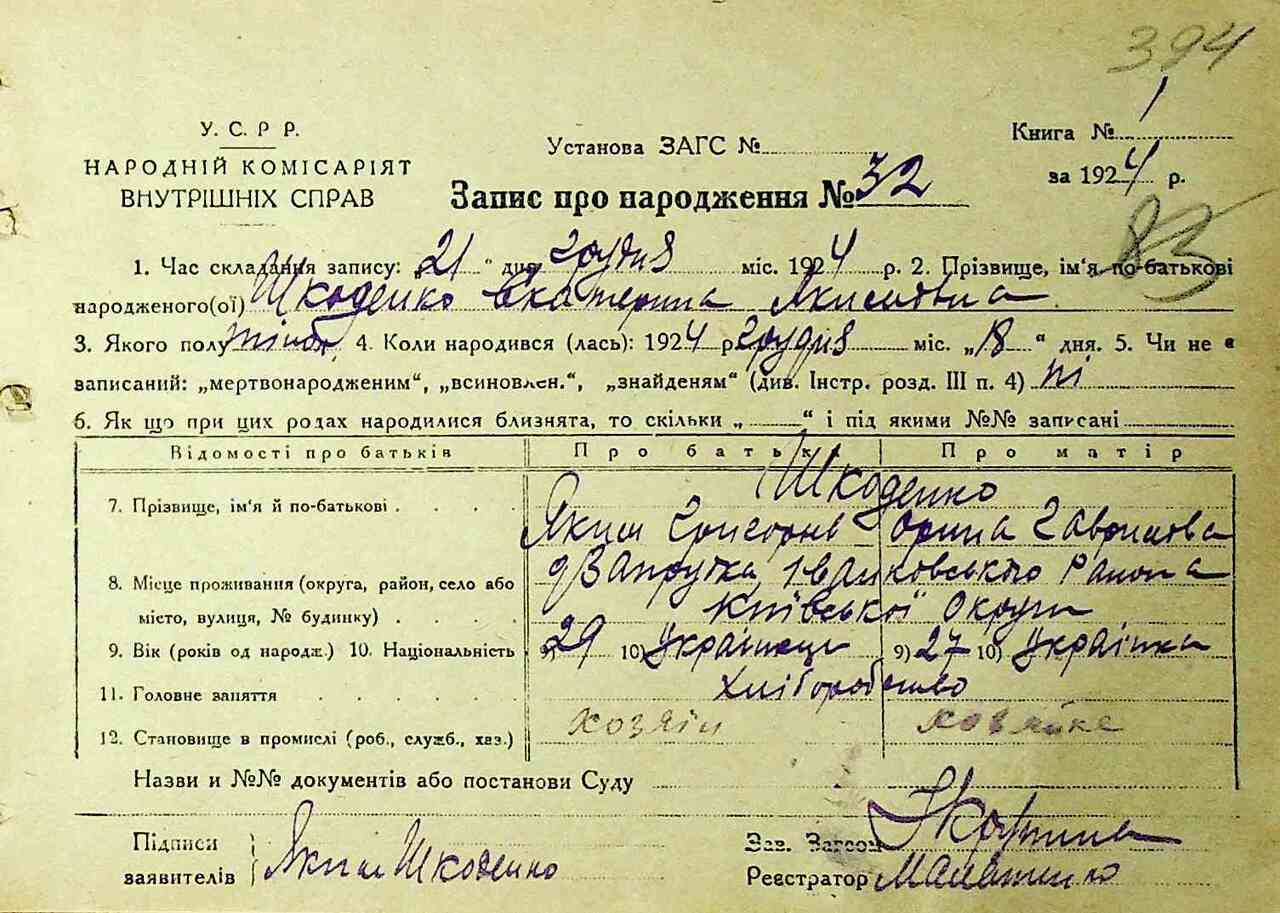 394
У. С. Р Р.
НАРОДНІЙ КОМІСАРІЯТ
ВНУТРІШНІХ СПРАВ
Установа ЗАГС №
Запис про народження № 32
Книга № 1
за 1924 р.
83
1. Час складання запису: „21“ дня Грудня міс. 1924 р. 2. Прізвище, ім'я по-батькові
народженого(ої) Шкоденко Екатерина Якимовна
3. Якого полу жіноч, 4. Коли народився (лась): 1924 р. Грудня міс. „18“ дня. 5. Чи не є
записаний: „мертвонародженим“, „всиновлен.“, „знайденям“ (див. Інстр. розд. III п. 4) ні
6. Як що при цих родах народилися близнята, то скільки „ “ і під якими №№ записані
Відомості про батьків Про батька Про матір
Шкоденко
7. Прізвище, ім'я й по-батькові . . . . Яким Григорів Орина Гаврилова
8. Місце проживання (округа, район, село або Іванковського Района
місто, вулиця, № будинку) . . . . Київської Округи
9. Вік (років од народж.) 10. Національність 9) 29 10) Українець 9) 27 10) Українка
11. Головне заняття . . . . . Хліборобство
12. Становище в промислі (роб., служб., хаз.) хозяин хозяйка
Назви и №№ документів або постанови Суду
Підписи
заявителів Яким Шкоденко
Зав. Загсом
Реєстратор